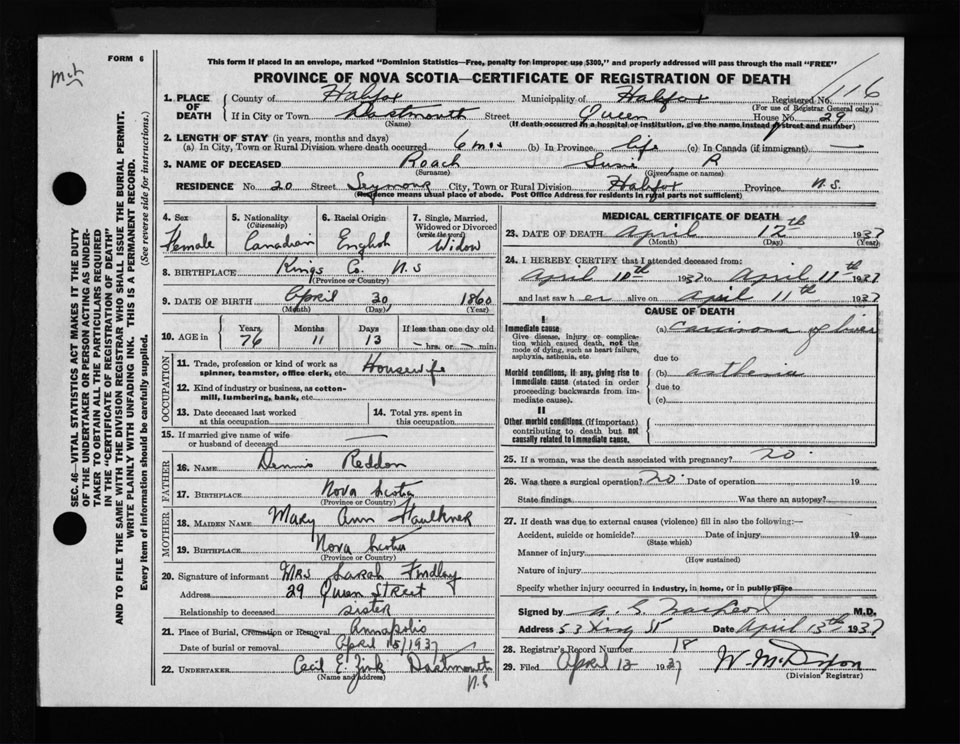 FORM 6
This form if placed in an envelope, marked "Dominion Statistics—Free, penalty for improper use $300," and properly addressed will pass through the mail "FREE"
PROVINCE OF NOVA SCOTIA—CERTIFICATE OF REGISTRATION OF DEATH
116
1. PLACE OF DEATH County of Halifax Municipality of Halifax Registered No.
(For use of Registrar General only)
If in City or Town Dartmouth Street Queen House No. 29
(Name) (If death occurred in a hospital or institution, give the name instead of street and number)
2. LENGTH OF STAY (in years, months and days)
(a) In City, Town or Rural Division where death occurred 6 mos (b) In Province life (c) In Canada (if immigrant) —
3. NAME OF DECEASED Roach Susie R
(Surname) (Given name or names)
RESIDENCE No. 20 Street Seymour City, Town or Rural Division Halifax Province N.S.
(Residence means usual place of abode. Post Office Address for residents in rural parts not sufficient)
SEC. 46—VITAL STATISTICS ACT MAKES IT THE DUTY
OF THE UNDERTAKER OR PERSON ACTING AS UNDER-
TAKER TO OBTAIN ALL THE PARTICULARS REQUIRED
IN THE "CERTIFICATE OF REGISTRATION OF DEATH"
AND TO FILE THE SAME WITH THE DIVISION REGISTRAR WHO SHALL ISSUE THE BURIAL PERMIT.
WRITE PLAINLY WITH UNFADING INK. THIS IS A PERMANENT RECORD.
Every item of information should be carefully supplied. (See reverse side for instructions.)
4. Sex Female
5. Nationality (Citizenship) Canadian
6. Racial Origin English
7. Single, Married, Widowed or Divorced (write the word) Widow
8. BIRTHPLACE Kings Co. N.S
(Province or Country)
9. DATE OF BIRTH April 20 1860
(Month) (Day) (Year)
10. AGE in Years 76 Months 11 Days 13 If less than one day old — hrs. or — min.
OCCUPATION
11. Trade, profession or kind of work as spinner, teamster, office clerk, etc. Housewife
12. Kind of industry or business, as cotton-mill, lumbering, bank, etc.
13. Date deceased last worked at this occupation
14. Total yrs. spent in this occupation
15. If married give name of wife or husband of deceased —
FATHER
16. NAME Dennis Reddon
17. BIRTHPLACE Nova Scotia
(Province or Country)
MOTHER
18. MAIDEN NAME Mary Ann Faulkner
19. BIRTHPLACE Nova Scotia
(Province or Country)
20. Signature of informant Mrs Sarah Findley
Address 29 Queen Street
Relationship to deceased Sister
21. Place of Burial, Cremation or Removal Annapolis
Date of burial or removal April 15/1937
22. UNDERTAKER Cecil E. Zink Dartmouth
(Name and address) N.S
MEDICAL CERTIFICATE OF DEATH
23. DATE OF DEATH April 12th 1937
(Month) (Day) (Year)
24. I HEREBY CERTIFY that I attended deceased from:
April 10th 1937 to April 11th 1937
and last saw h er alive on April 11th 1937
CAUSE OF DEATH
I
Immediate cause (a) Carcinoma of liver
Give disease, injury or complication which caused death, not the mode of dying, such as heart failure, asphyxia, asthenia, etc.
due to
Morbid conditions, if any, giving rise to immediate cause (stated in order proceeding backwards from immediate cause). (b) asthenia
due to
(c)
II
Other morbid conditions (if important) contributing to death but not causally related to immediate cause.
25. If a woman, was the death associated with pregnancy? no.
26. Was there a surgical operation? no. Date of operation 19
State findings Was there an autopsy?
27. If death was due to external causes (violence) fill in also the following:—
Accident, suicide or homicide? Date of injury 19
(State which)
Manner of injury
(How sustained)
Nature of injury
Specify whether injury occurred in industry, in home, or in public place
Signed by M.D.
Address 53 King St Date April 13th 1937
28. Registrar's Record Number 18
29. Filed April 12 1937
(Division Registrar)